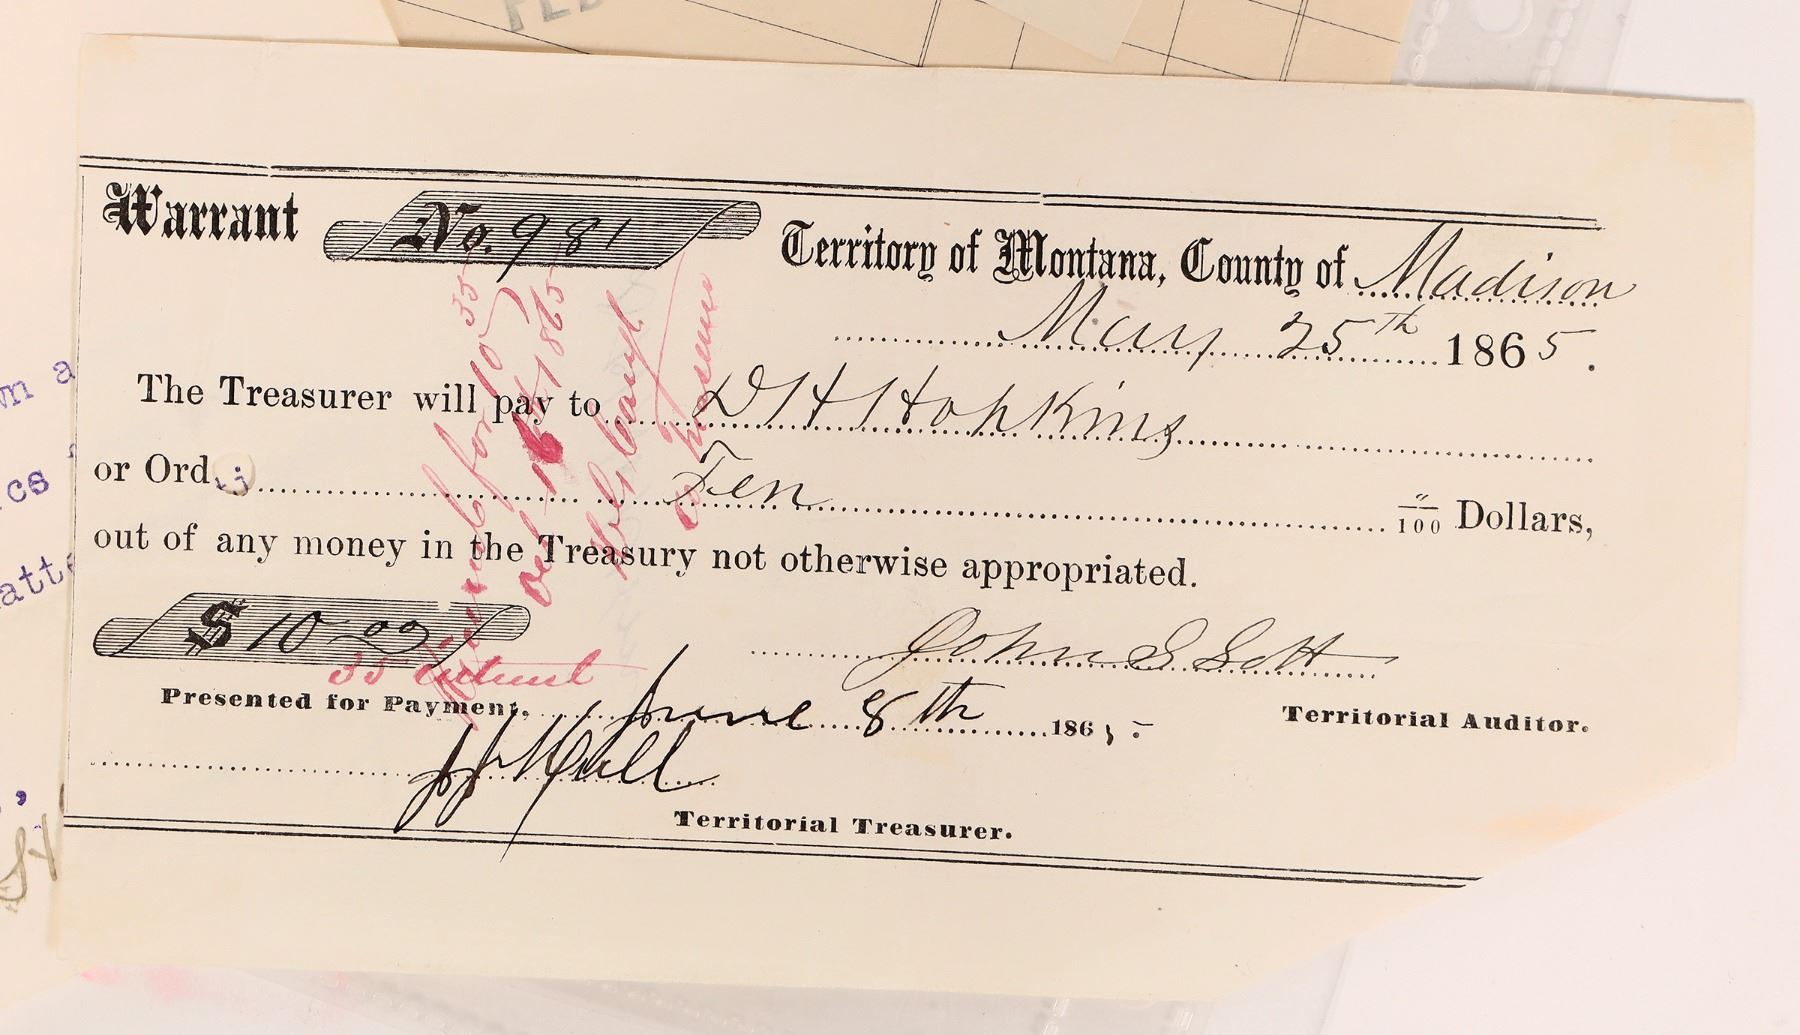 FED
Warrant No. 981
Territory of Montana, County of Madison
May 25th 1865.
The Treasurer will pay to D H Hopkins
or Ord
Ten "/100 Dollars,
out of any money in the Treasury not otherwise appropriated.
$10 00
35
John S Lott
Presented for Payment, June 8th 186
Territorial Auditor.
Hull
Territorial Treasurer.
for 10 35
Oct 16 1865
wn a
ics
atte